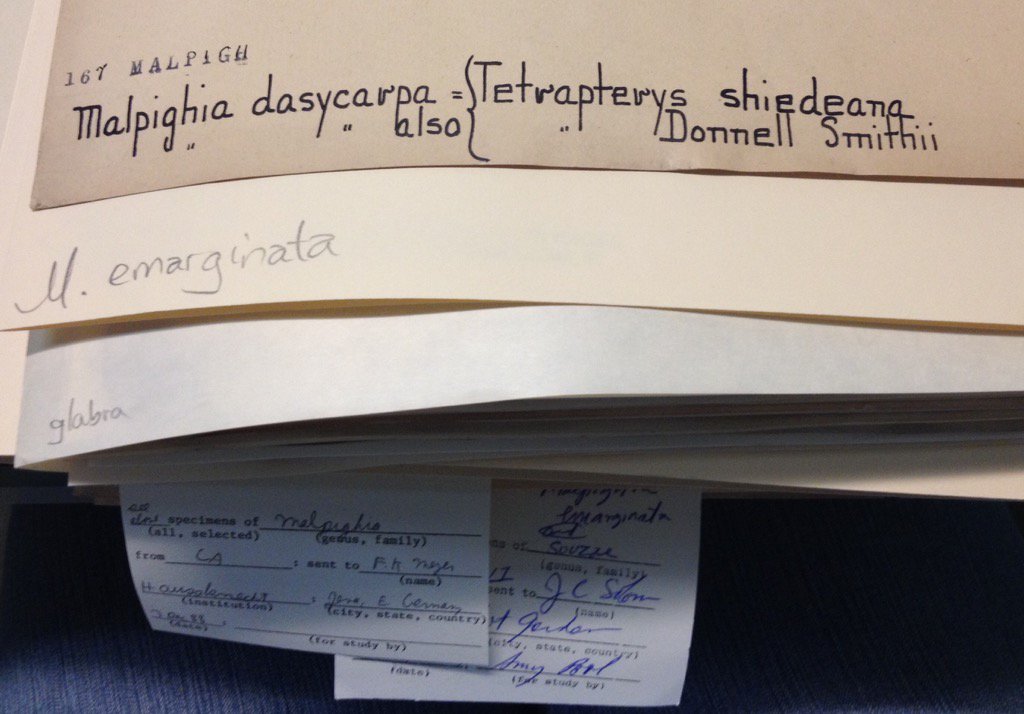 167 MALPIGH
Malpighia dasycarpa = { Tetrapterys shiedeana
" " also { " Donnell Smithii
M. emarginata
glabra
specimens of Malpighia
(all, selected) (genus, family)
from CA : sent to F.K. Meyer
(name)
Haussknecht ; Jena, E. Germany
(institution) (city, state, country)
(date)
(for study by)
emarginata
(genus, family)
sent to J C
(name)
(city, state, country)
Amy
(date) (for study by)